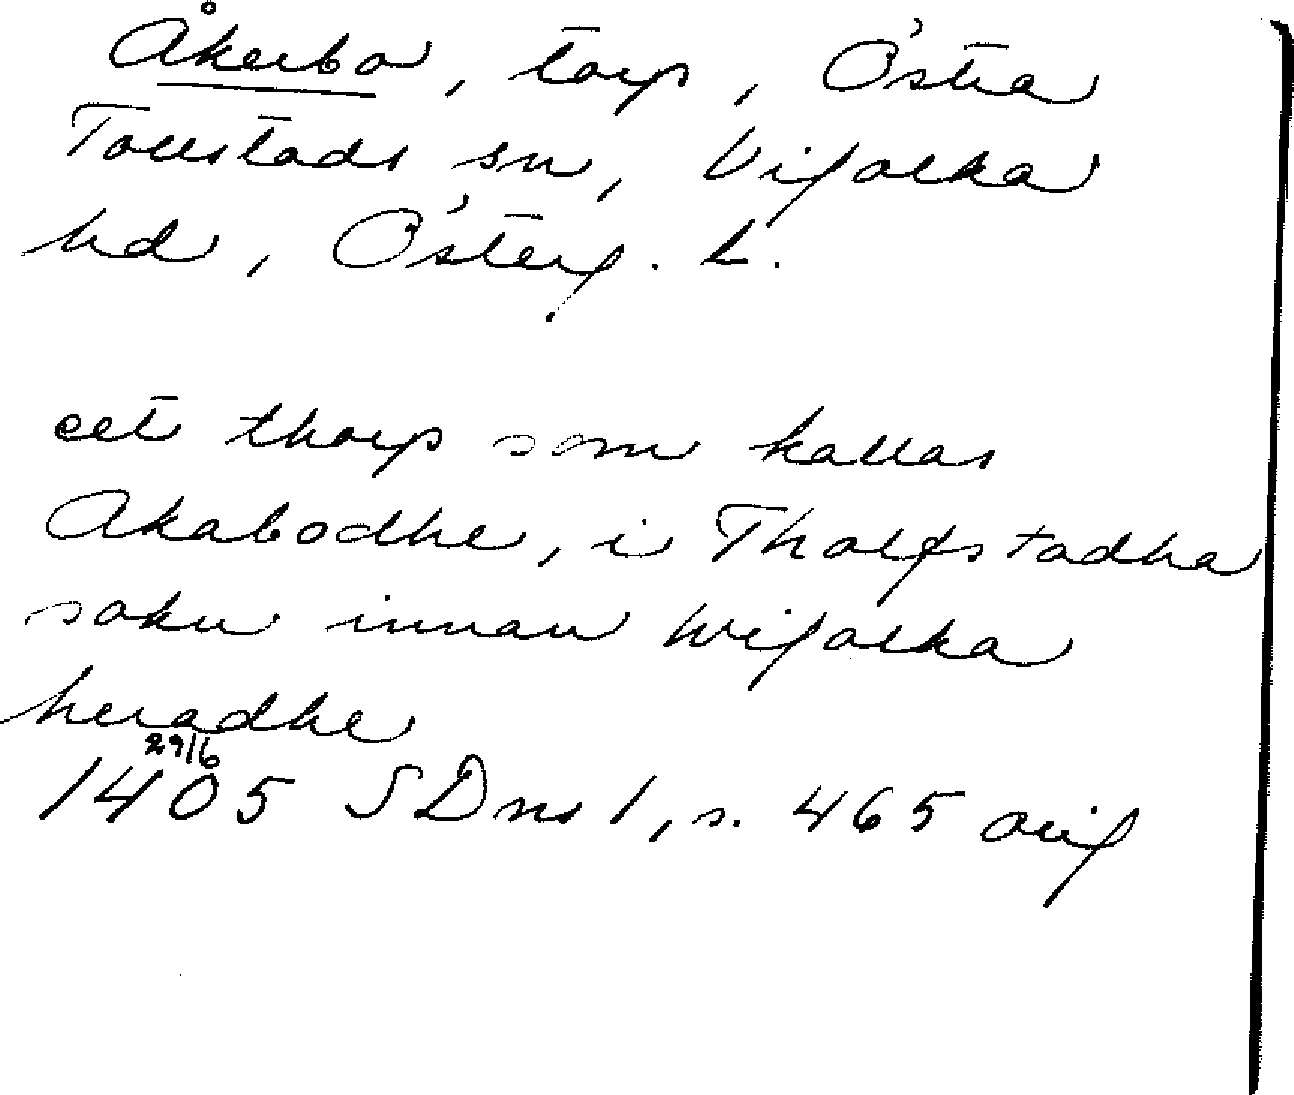 Åkerbo, torp, Östra
Tollstads sn, Vifolka
hd, Österg. L.
eet thorp som kallas
Akabodhe, i Tholfstadha
sokn innan Wifolka
heradhe
29/6
1405 SDns 1, s. 465 orig